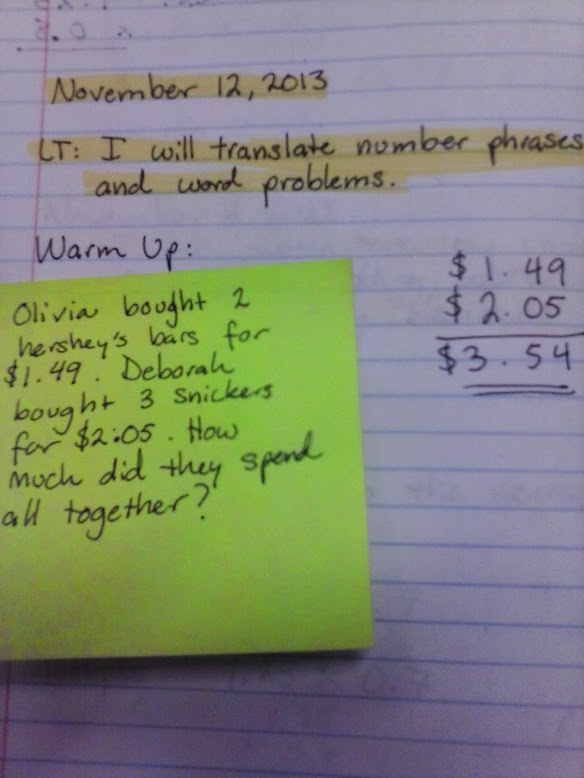 November 12, 2013
LT: I will translate number phrases
and word problems.
Warm Up:
Olivia bought 2
hershey's bars for
$1.49. Deborah
bought 3 snickers
for $2.05. How
much did they spend
all together?
$1.49
$2.05
$3.54